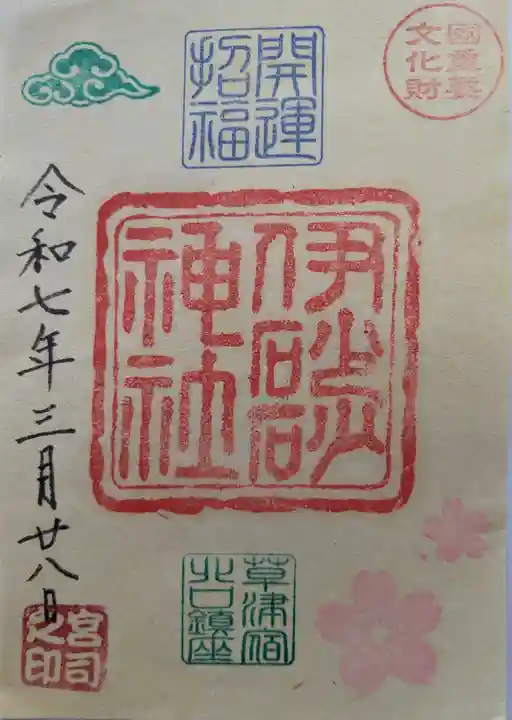 國重要
文化財
開運
招福
伊砂砂
神社
草津宿
北口鎮座
令和七年三月廿八日
宮司
之印